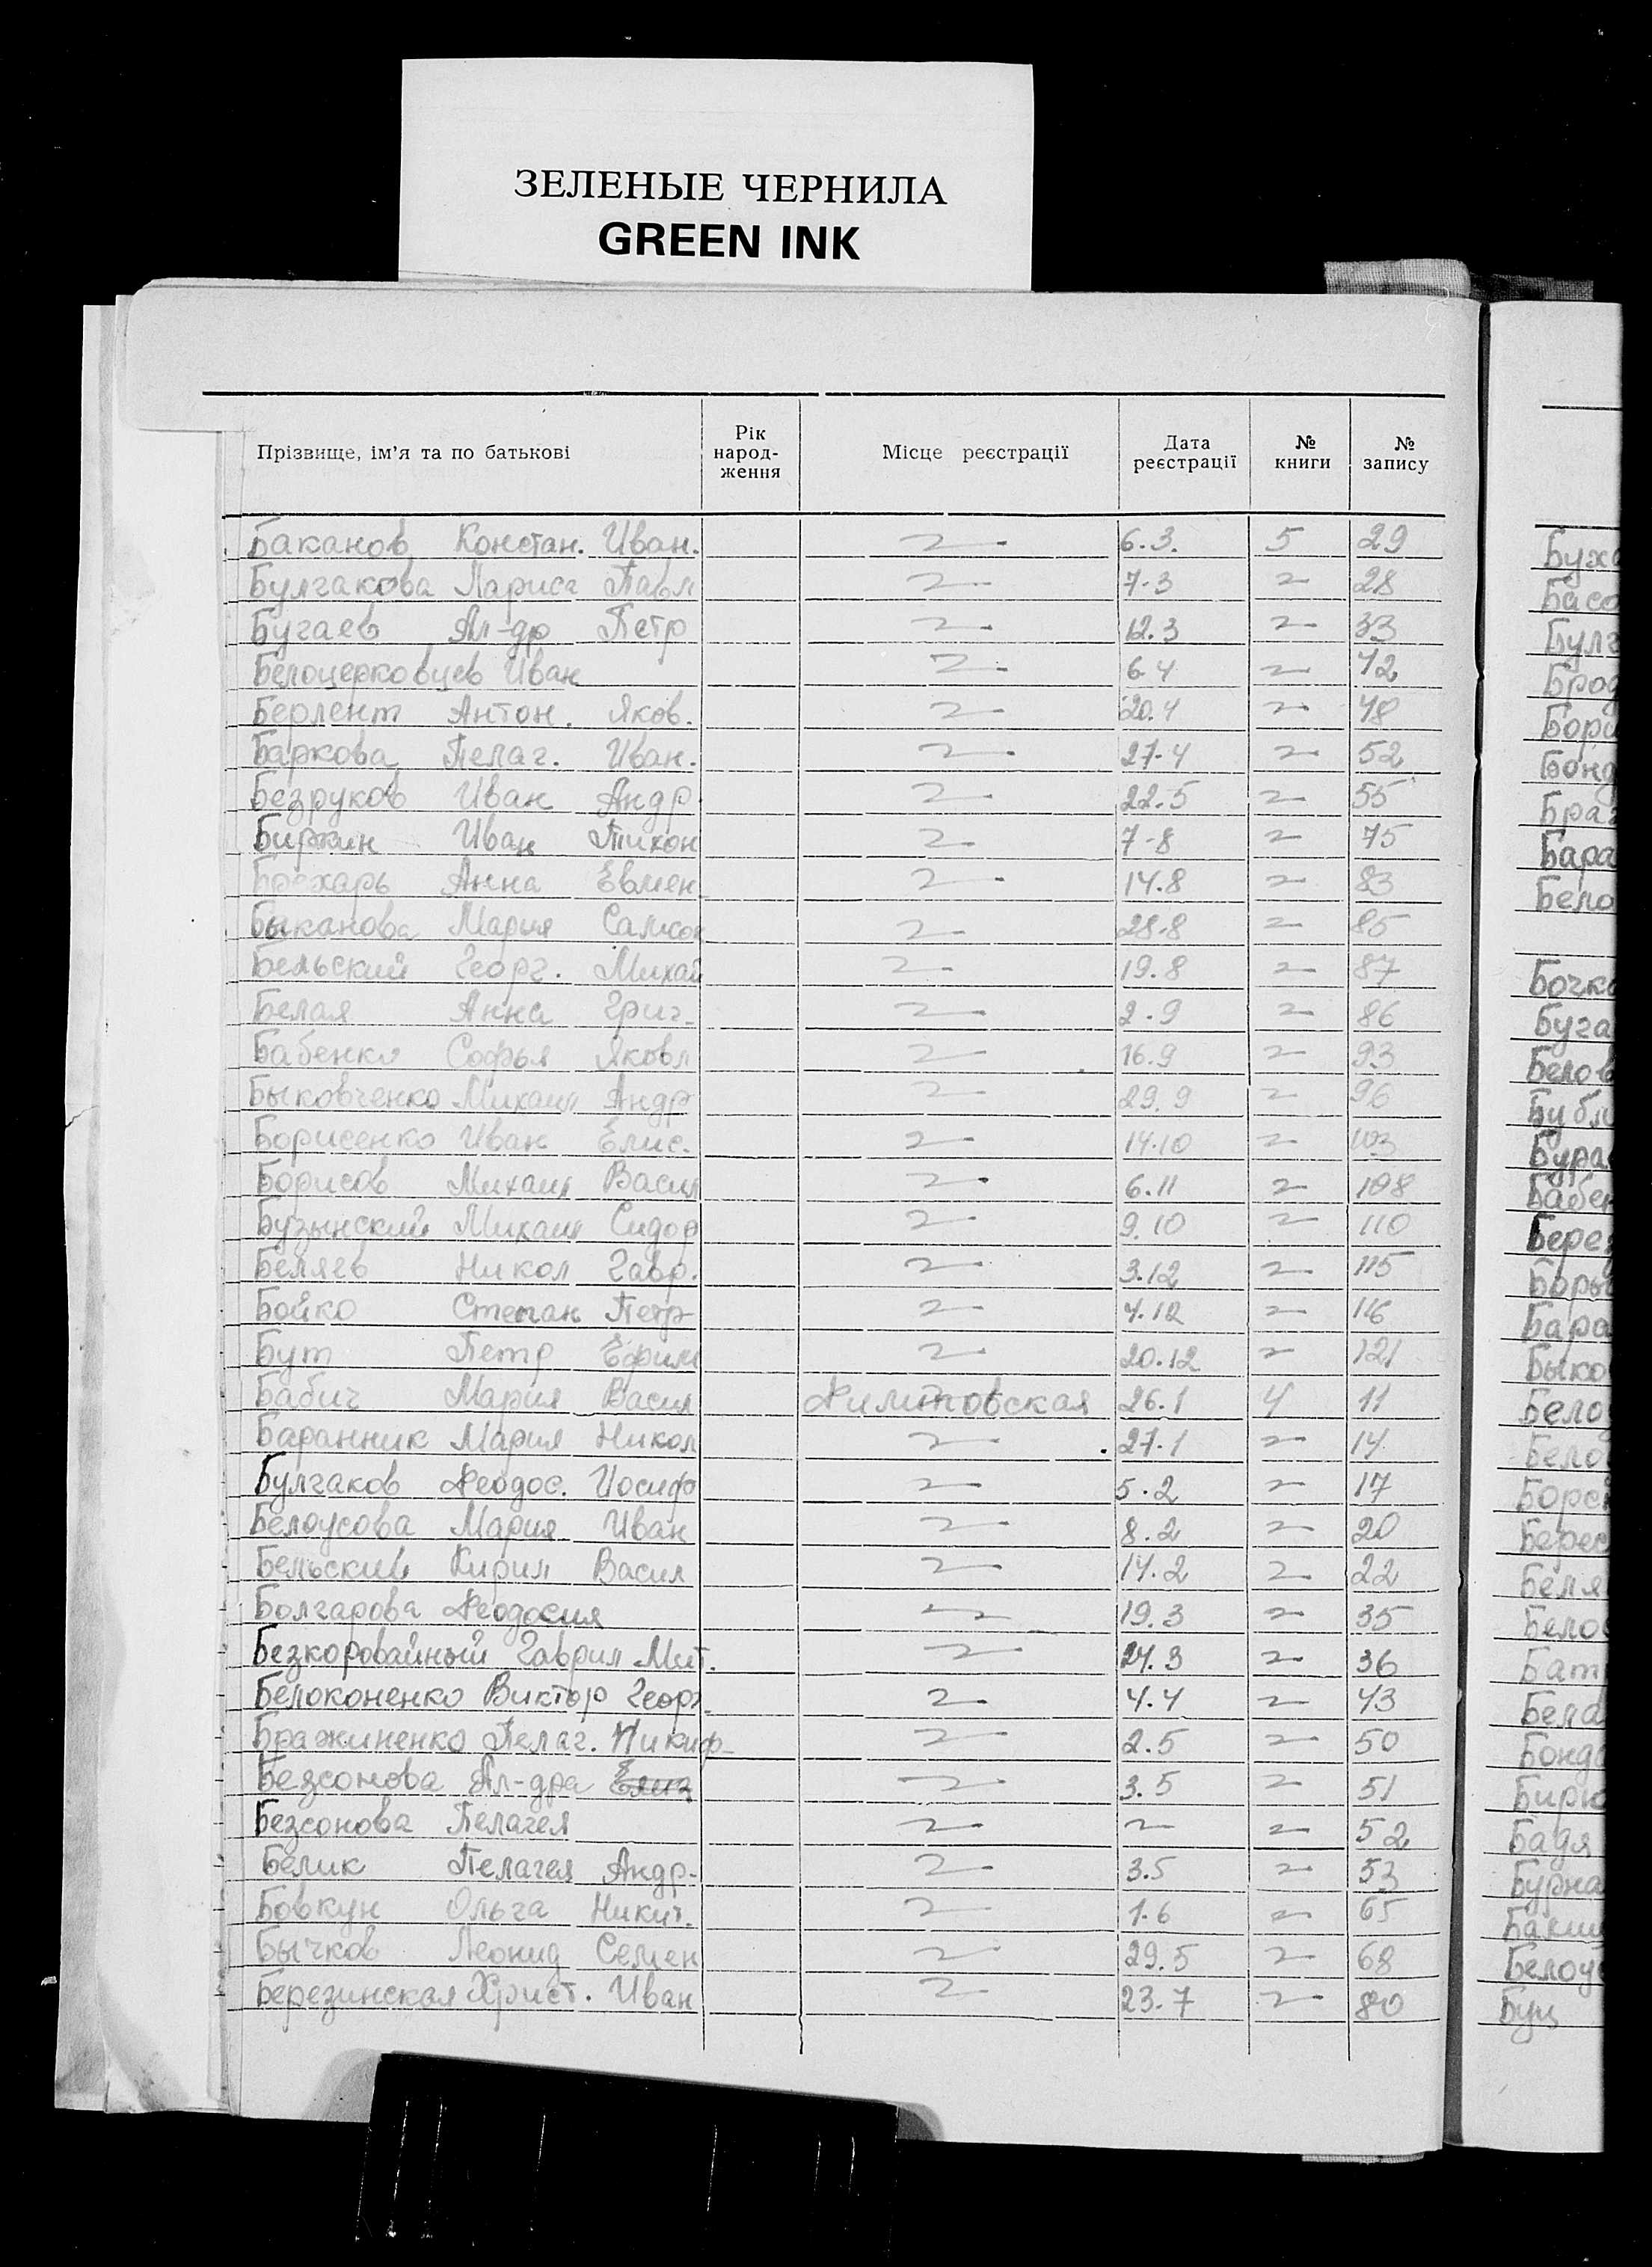 ЗЕЛЕНЫЕ ЧЕРНИЛА
GREEN INK
Прізвище, ім’я та по батькові Рік народ- ження Місце реєстрації Дата реєстрації № книги № запису
Баканов Констан. Иван. 〃 6.3. 5 29
Булгакова Лариса Павл 〃 7-3 〃 28
Бугаев Ал-др Петр 〃 12.3 〃 33
Белоцерковцев Иван 〃 6 4 〃 42
Берлент Антон. Яков. 〃 20.4 〃 48
Баркова Пелаг. Иван. 〃 27-4 〃 52
Безруков Иван Андр. 〃 22.5 〃 55
Биркин Иван Тихон 〃 7-8 〃 75
Анна Евмен. 〃 14.8 〃 83
Быканова Мария Самсон 〃 28.8 〃 85
Бельский Георг. Михай 〃 19.8 〃 87
Белая Анна Григ. 〃 2.9 〃 86
Бабенко Софья Яковл 〃 16.9 〃 93
Быковченко Михаил Андр 〃 29.9 〃 96
Борисенко Иван Елис. 〃 14.10 〃 103
Борисов Михаил Васил 〃 6.11 〃 108
Бузынский Михаил Сидор 〃 9.10 〃 110
Беляев Никол Гавр. 〃 3.12 〃 115
Бойко Степан Петр 〃 4.12 〃 116
Бут Петр Ефим 〃 20.12 〃 121
Бабич Мария Васил 26.1 4 11
Баранник Мария Никол 〃 27.1 〃 14
Булгаков Феодос. Иосиф 〃 5.2 〃 17
Белоусова Мария Иван 〃 8.2 〃 20
Бельский Кирил Васил 〃 14.2 〃 22
Болгарова Феодосия 〃 19.3 〃 35
Безкоровайный Гаврил Мит. 〃 24.3 〃 36
Белоконенко Виктор Георг. 〃 4.4 〃 43
Бражиненко Пелаг. Никиф- 〃 2.5 〃 50
Безсонова Ал-дра 〃 3.5 〃 51
Безсонова Пелагея 〃 〃 〃 52
Белик Пелагея Андр- 〃 3.5 〃 53
Бовкун Ольга Никит. 〃 1.6 〃 65
Бычков Леонид Семен 〃 29.5 〃 68
Березинская Христ. Иван 〃 23.7 〃 80
Буха
Басо
Булг
Брод
Бори
Бонд
Браг
Бара
Бело
Бочко
Буга
Белов
Бубли
Бура
Бабен
Берез
Боры
Бара
Быко
Бело
Бело
Борс
Берес
Беля
Бело
Бат
Бела
Бонда
Бирю
Бадя
Бурна
Белоу
Буц